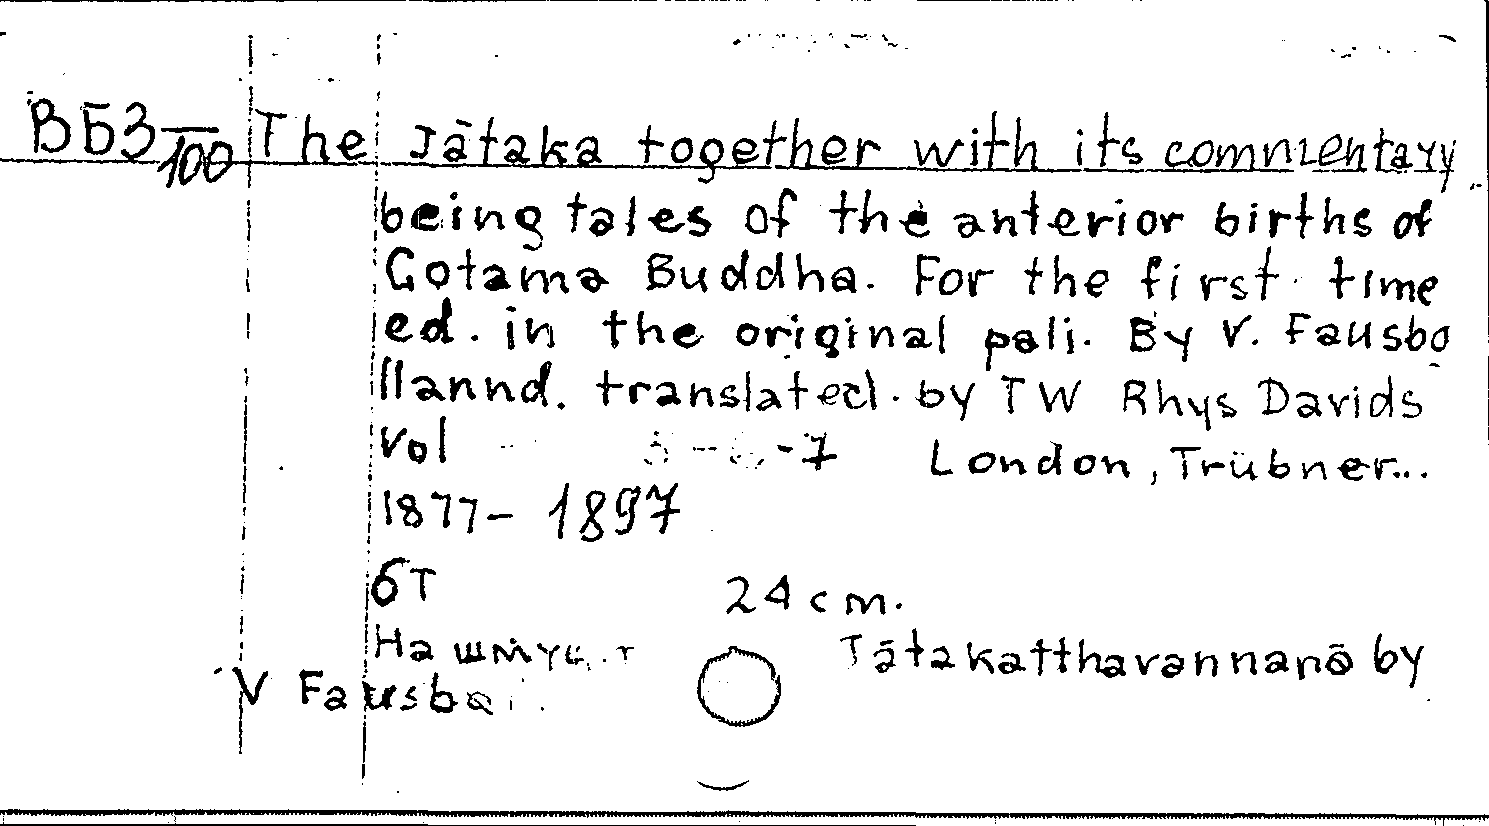 ВБЗ/100 The Jātaka together with its commentary
being tales of the anterior births of
Gotama Buddha. For the first time
ed. in the original pali. By V. Fausbo
llannd. translated. by TW Rhys Davids
vol 5-6-7 London, Trübner...
1877- 1897
6T 24 cm.
На Jātakatthavannanā by
V Fausbo